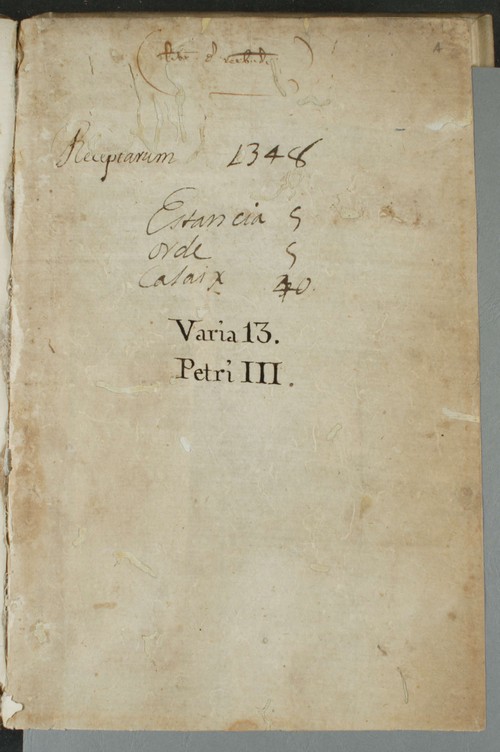 Receptarum 1348
Estancia 5
orde 5
Calaix 40.
Varia 13.
Petri III.